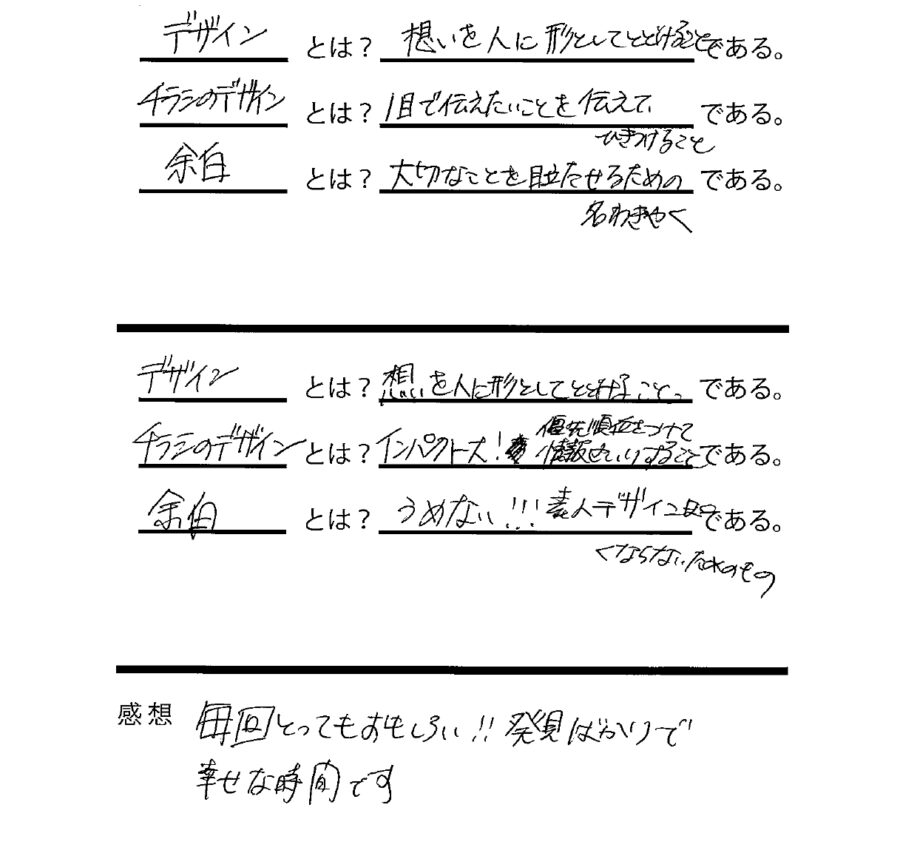 デザイン とは? 想いを人に形としてとどけること である。
チラシのデザイン とは? 1目で伝えたいことを伝えて である。
ひきつけること
余白 とは? 大切なことを目立たせるための である。
名わきやく
デザイン とは? 想いを人に形としてとどけること。 である。
優先順位をつけて
チラシのデザイン とは? インパクト大! 情報せいりすること である。
余白 とは? うめない!!! 素人デザイン である。
くならないためのもの
感想 毎回とってもおもしろい!! 発見ばかりで
幸せな時間です